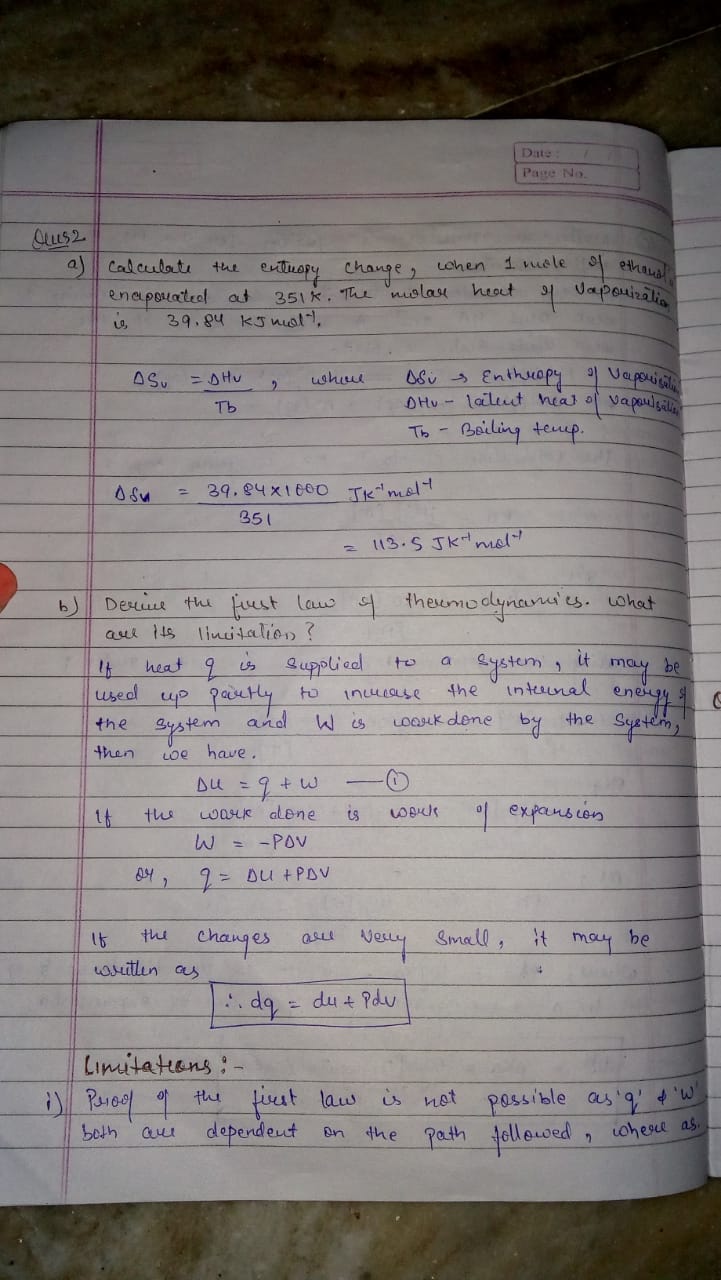 Date : / /
Page No.
Ques2
a) Calculate the entropy change, when 1 mole of ethanol
enaporated at 351K. The molar heat of Vaporization
is 39.84 KJ mol⁻¹.
ΔSv = ΔHv , where ΔSv → Enthropy of Vaporisation
Tb ΔHv - latent heat of vaporisation
Tb - Boiling temp.
ΔSv = 39.84×1000 JK⁻¹mol⁻¹
351
= 113.5 JK⁻¹mol⁻¹
b) Derive the first law of thermodynamics. What
are its limitation?
If heat q is supplied to a system, it may be
used up partly to increase the internal energy of
the system and W is workdone by the system,
then we have.
ΔU = q + W — ①
If the work done is work of expansion
W = -PΔV
or, q = ΔU + PΔV
If the changes are very small, it may be
written as
∴ dq = du + Pdv
Limitations :-
i) Proof of the first law is not possible as 'q' & 'W'
both are dependent on the path followed, where as.